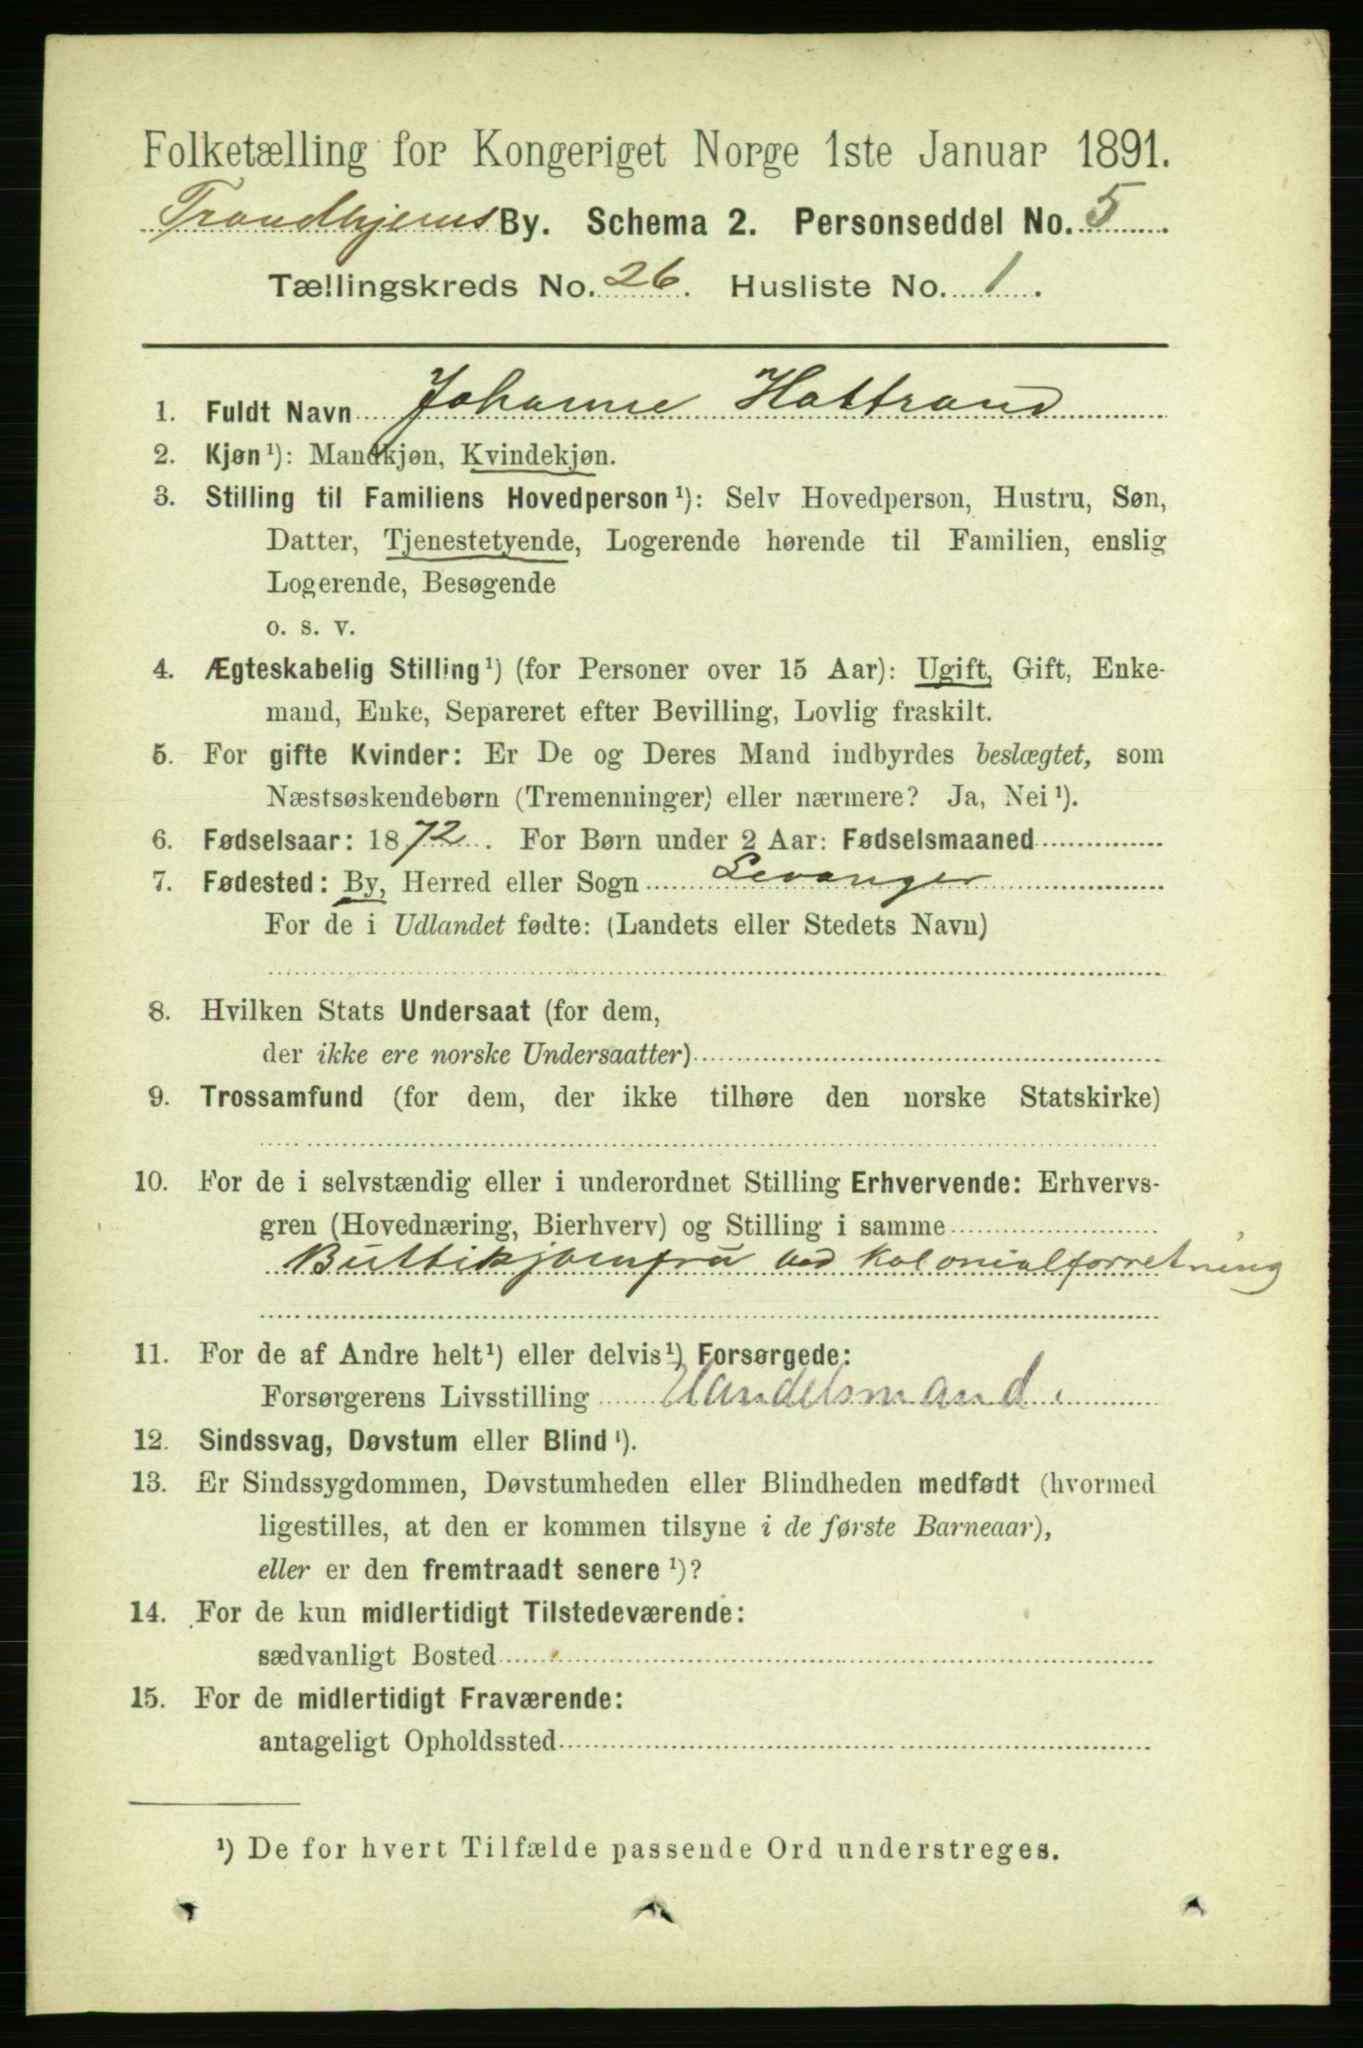 Folketælling for Kongeriget Norge 1ste Januar 1891.
Trondhjems By. Schema 2. Personseddel No. 5.
Tællingskreds No. 26. Husliste No. 1.
1. Fuldt Navn Johanne Hattrand
2. Kjøn¹): Mandkjøn, Kvindekjøn.
3. Stilling til Familiens Hovedperson¹): Selv Hovedperson, Hustru, Søn,
Datter, Tjenestetyende, Logerende hørende til Familien, enslig
Logerende, Besøgende
o. s. v.
4. Ægteskabelig Stilling¹) (for Personer over 15 Aar): Ugift, Gift, Enke-
mand, Enke, Separeret efter Bevilling, Lovlig fraskilt.
5. For gifte Kvinder: Er De og Deres Mand indbyrdes beslægtet, som
Næstsøskendebørn (Tremenninger) eller nærmere? Ja, Nei¹).
6. Fødselsaar: 1872. For Børn under 2 Aar: Fødselsmaaned
7. Fødested: By, Herred eller Sogn Levanger
For de i Udlandet fødte: (Landets eller Stedets Navn)
8. Hvilken Stats Undersaat (for dem,
der ikke ere norske Undersaatter)
9. Trossamfund (for dem, der ikke tilhøre den norske Statskirke)
10. For de i selvstændig eller i underordnet Stilling Erhvervende: Erhvervs-
gren (Hovednæring, Bierhverv) og Stilling i samme
Buttikjomfru ved Kolonialforretning
11. For de af Andre helt¹) eller delvis¹) Forsørgede:
Forsørgerens Livsstilling Handelsmand.
12. Sindssvag, Døvstum eller Blind¹).
13. Er Sindssygdommen, Døvstumheden eller Blindheden medfødt (hvormed
ligestilles, at den er kommen tilsyne i de første Barneaar),
eller er den fremtraadt senere¹)?
14. For de kun midlertidigt Tilstedeværende:
sædvanligt Bosted
15. For de midlertidigt Fraværende:
antageligt Opholdssted
¹) De for hvert Tilfælde passende Ord understreges.